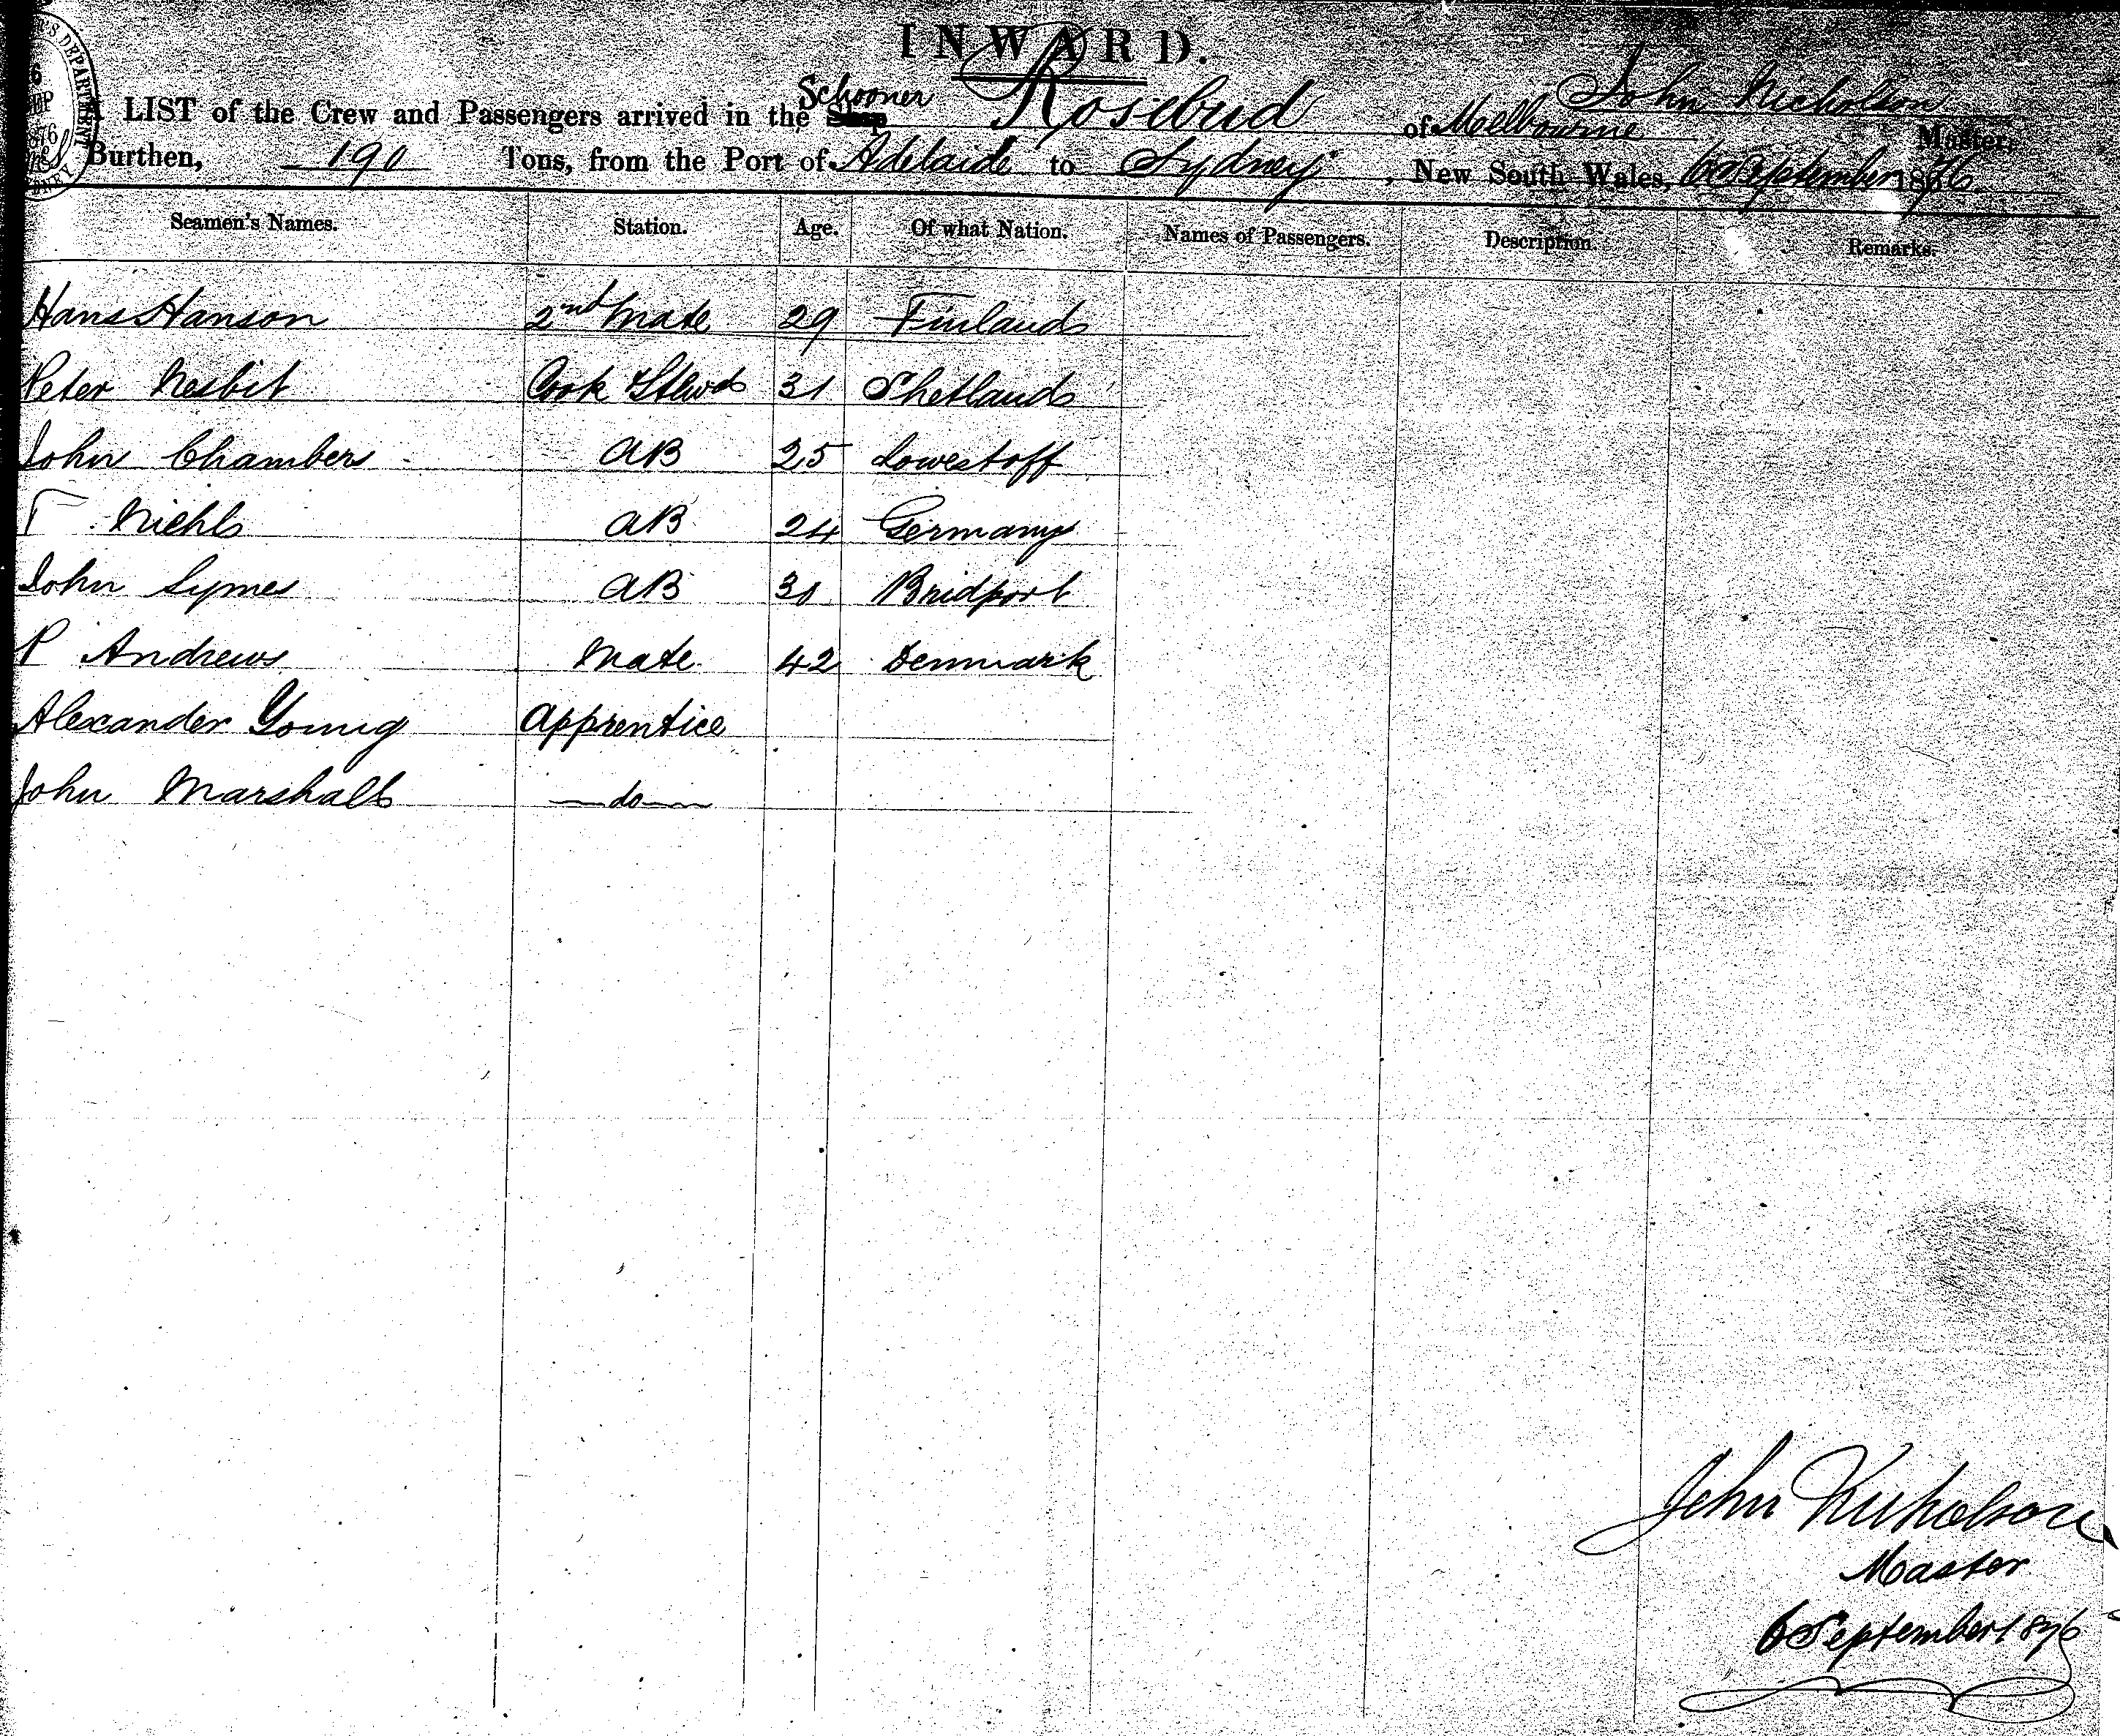 INWARD.
A LIST of the Crew and Passengers arrived in the Schooner Rosebud of Melbourne John Nicholson Master,
Burthen, 190 Tons, from the Port of Adelaide to Sydney, New South Wales, 6 September 1876
Seamen's Names. Station. Age. Of what Nation. Names of Passengers. Description. Remarks.
Hans Hanson 2nd Mate 29 Finland
Peter Nesbit Cook & Stewd 31 Shetland
John Chambers AB 25 Lowestoff
Niehls AB 24 Germany
John Symes AB 31 Bridport
P Andrews Mate 42 Denmark
Alexander Young Apprentice
John Marshall do
John Nicholson
Master
6 September 1876